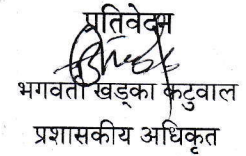 प्रतिवेदन
भगवती खड्का कटुवाल
प्रशासकीय अधिकृत